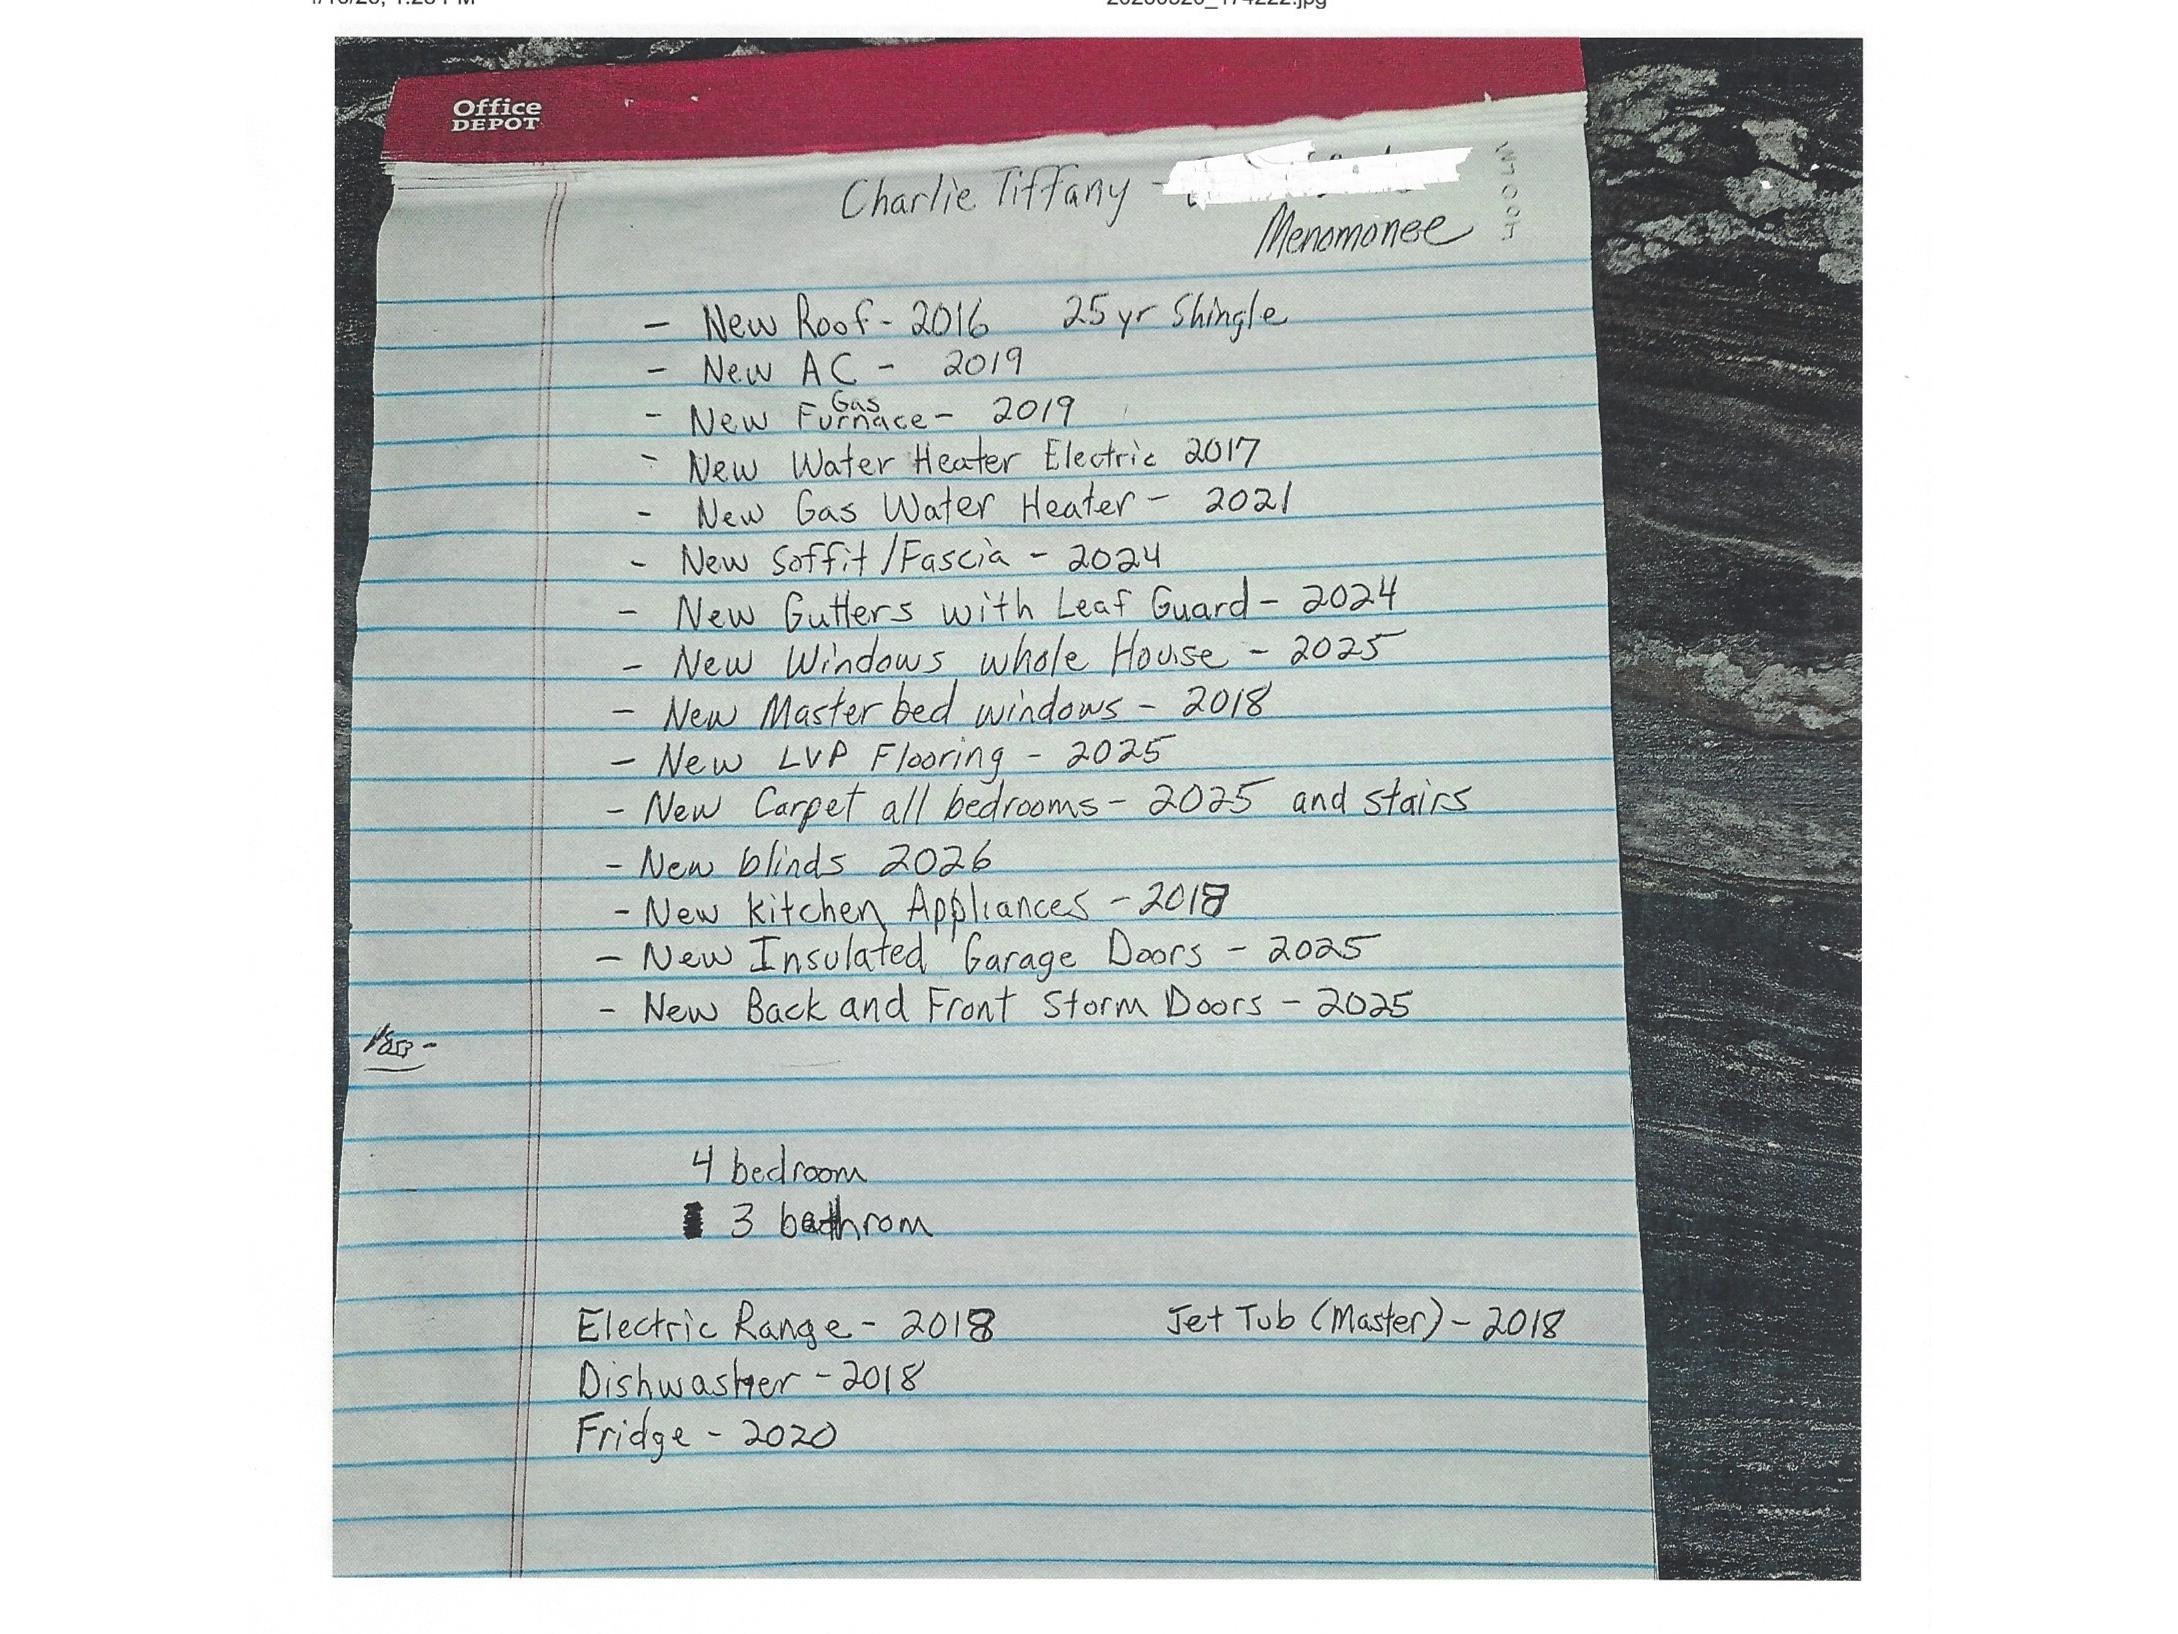 Office
DEPOT
Charlie Tiffany -
Menomonee
- New Roof - 2016 25 yr Shingle
- New AC - 2019
- New Gas Furnace - 2019
- New Water Heater Electric 2017
- New Gas Water Heater - 2021
- New Soffit / Fascia - 2024
- New Gutters with Leaf Guard - 2024
- New Windows whole House - 2025
- New Master bed windows - 2018
- New LVP Flooring - 2025
- New Carpet all bedrooms - 2025 and stairs
- New blinds 2026
- New kitchen Appliances - 2018
- New Insulated Garage Doors - 2025
- New Back and Front Storm Doors - 2025
4 bedroom
3 bathrom
Electric Range - 2018 Jet Tub (Master) - 2018
Dishwasher - 2018
Fridge - 2020